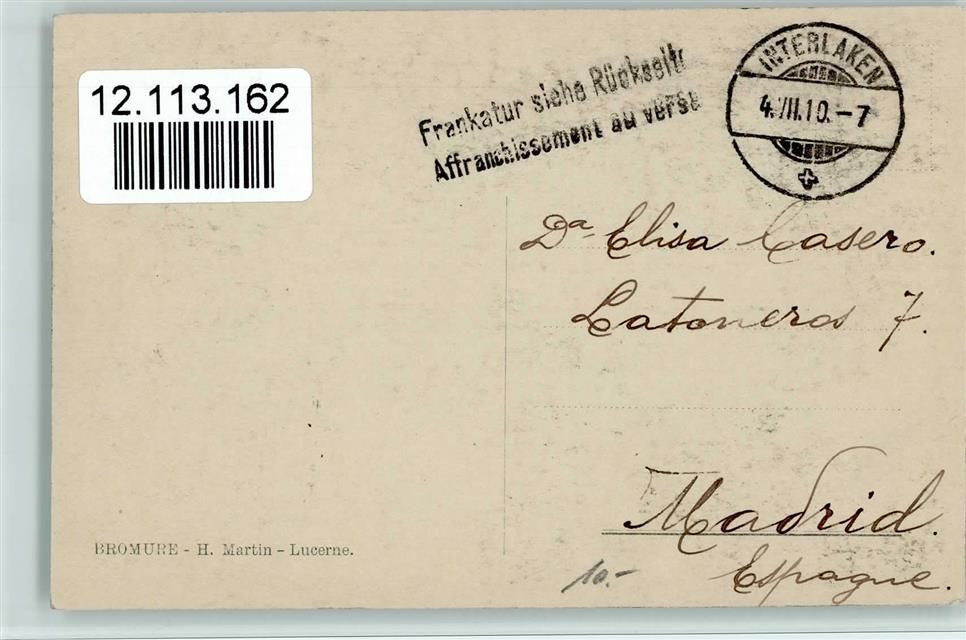 12.113.162
Frankatur siehe Rückseite
Affranchissement au verso
INTERLAKEN
4.VII.10.-7
Dª Elisa Casero.
Latoneros 7.
Madrid.
Espagne.
BROMURE - H. Martin - Lucerne.
10.-